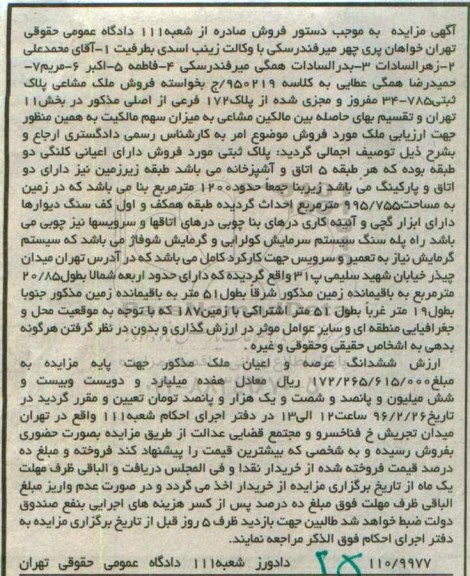 آگهی مزایده به موجب دستور فروش صادره از شعبه۱۱۱ دادگاه عمومی حقوقی
تهران خواهان پری چهر میرفندرسکی با وکالت زینب اسدی بطرفیت ۱-آقای محمدعلی
۲-زهرالسادات ۳-بدرالسادات همگی میرفندرسکی ۴-فاطمه ۵-اکبر ۶-مریم۷-
حمیدرضا همگی عطایی به کلاسه ۹۵۰۲۱۹/ج بخواسته فروش ملک مشاعی پلاک
ثبتی۳۴-۷۸۵ مفروز و مجزی شده از پلاک۱۷۲ فرعی از اصلی مذکور در بخش۱۱
تهران و تقسیم بهای حاصله بین مالکین مشاعی به میزان سهم مالکیت به همین منظور
جهت ارزیابی ملک مورد فروش موضوع امر به کارشناس رسمی دادگستری ارجاع و
بشرح ذیل توصیف اجمالی گردید: پلاک ثبتی مورد فروش دارای اعیانی کلنگی دو
طبقه بوده که هر طبقه ۵ اتاق و آشپزخانه می باشد طبقه زیرزمین نیز دارای دو
اتاق و پارکینگ می باشد زیربنا جمعا حدود۱۲۰۰ مترمربع بنا می باشد که در زمین
به مساحت۹۹۵/۷۵۵ مترمربع احداث گردیده طبقه همکف و اول کف سنگ دیوارها
دارای ابزار گچی و آئینه کاری درهای بنا چوبی درهای اتاقها و سرویسها نیز چوبی می
باشد راه پله سنگ سیستم سرمایش کولرابی و گرمایش شوفاژ می باشد که سیستم
گرمایش نیاز به تعمیر و سرویس جهت کارکرد کامل می باشد که در آدرس تهران میدان
چیذر خیابان شهید سلیمی پ۳۱ واقع گردیده که دارای حدود اربعه شمالا بطول۲۰/۸۵
مترمربع به باقیمانده زمین مذکور شرقا بطول۵۱ متر به باقیمانده زمین مذکور جنوبا
بطول۱۹ متر غربا بطول ۵۱ متر اشتراکی با زمین۱۸۷ که با توجه به موقعیت محل و
جغرافیایی منطقه ای و سایر عوامل موثر در ارزش گذاری و بدون در نظر گرفتن هرگونه
بدهی به اشخاص حقیقی وحقوقی و غیره .
ارزش ششدانگ عرصه و اعیان ملک مذکور جهت پایه مزایده به
مبلغ۱۷۲/۲۶۵/۶۱۵/۰۰۰ ریال معادل هفده میلیارد و دویست وبیست و
شش میلیون و پانصد و شصت و یک هزار و پانصد تومان تعیین و مقرر گردید در
تاریخ۹۶/۲/۲۶ ساعت۱۲ الی۱۳ در دفتر اجرای احکام شعبه۱۱۱ واقع در تهران
میدان تجریش خ فناخسرو و مجتمع قضایی عدالت از طریق مزایده بصورت حضوری
بفروش رسیده و به شخصی که بیشترین قیمت را پیشنهاد کند فروخته و مبلغ ده
درصد قیمت فروخته شده از خریدار نقدا و فی المجلس دریافت و الباقی ظرف مهلت
یک ماه از تاریخ برگزاری مزایده از خریدار اخذ می گردد و در صورت عدم واریز مبلغ
الباقی ظرف مهلت فوق مبلغ ده درصد پس از کسر هزینه های اجرایی بنفع صندوق
دولت ضبط خواهد شد طالبین جهت بازدید ظرف ۵ روز قبل از تاریخ برگزاری مزایده به
دفتر اجرای احکام فوق الذکر مراجعه نمایند.
۱۱۰/۹۹۷۷ دادورز شعبه۱۱۱ دادگاه عمومی حقوقی تهران